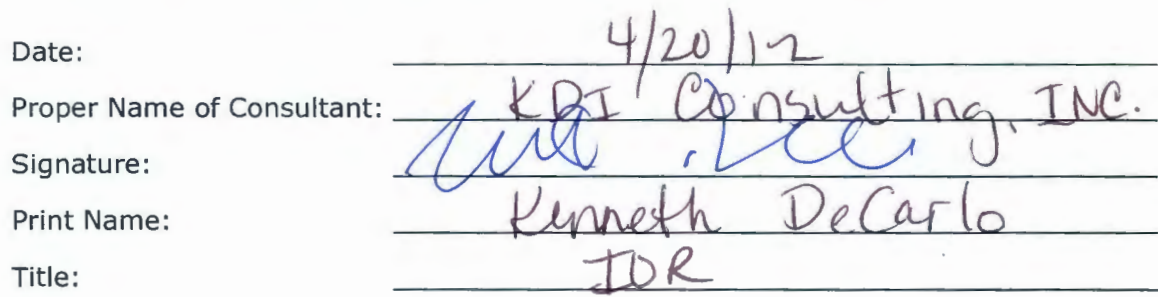 Date: 4/20/12
Proper Name of Consultant: KDI Consulting, INC.
Signature:
Print Name: Kenneth DeCarlo
Title: IOR